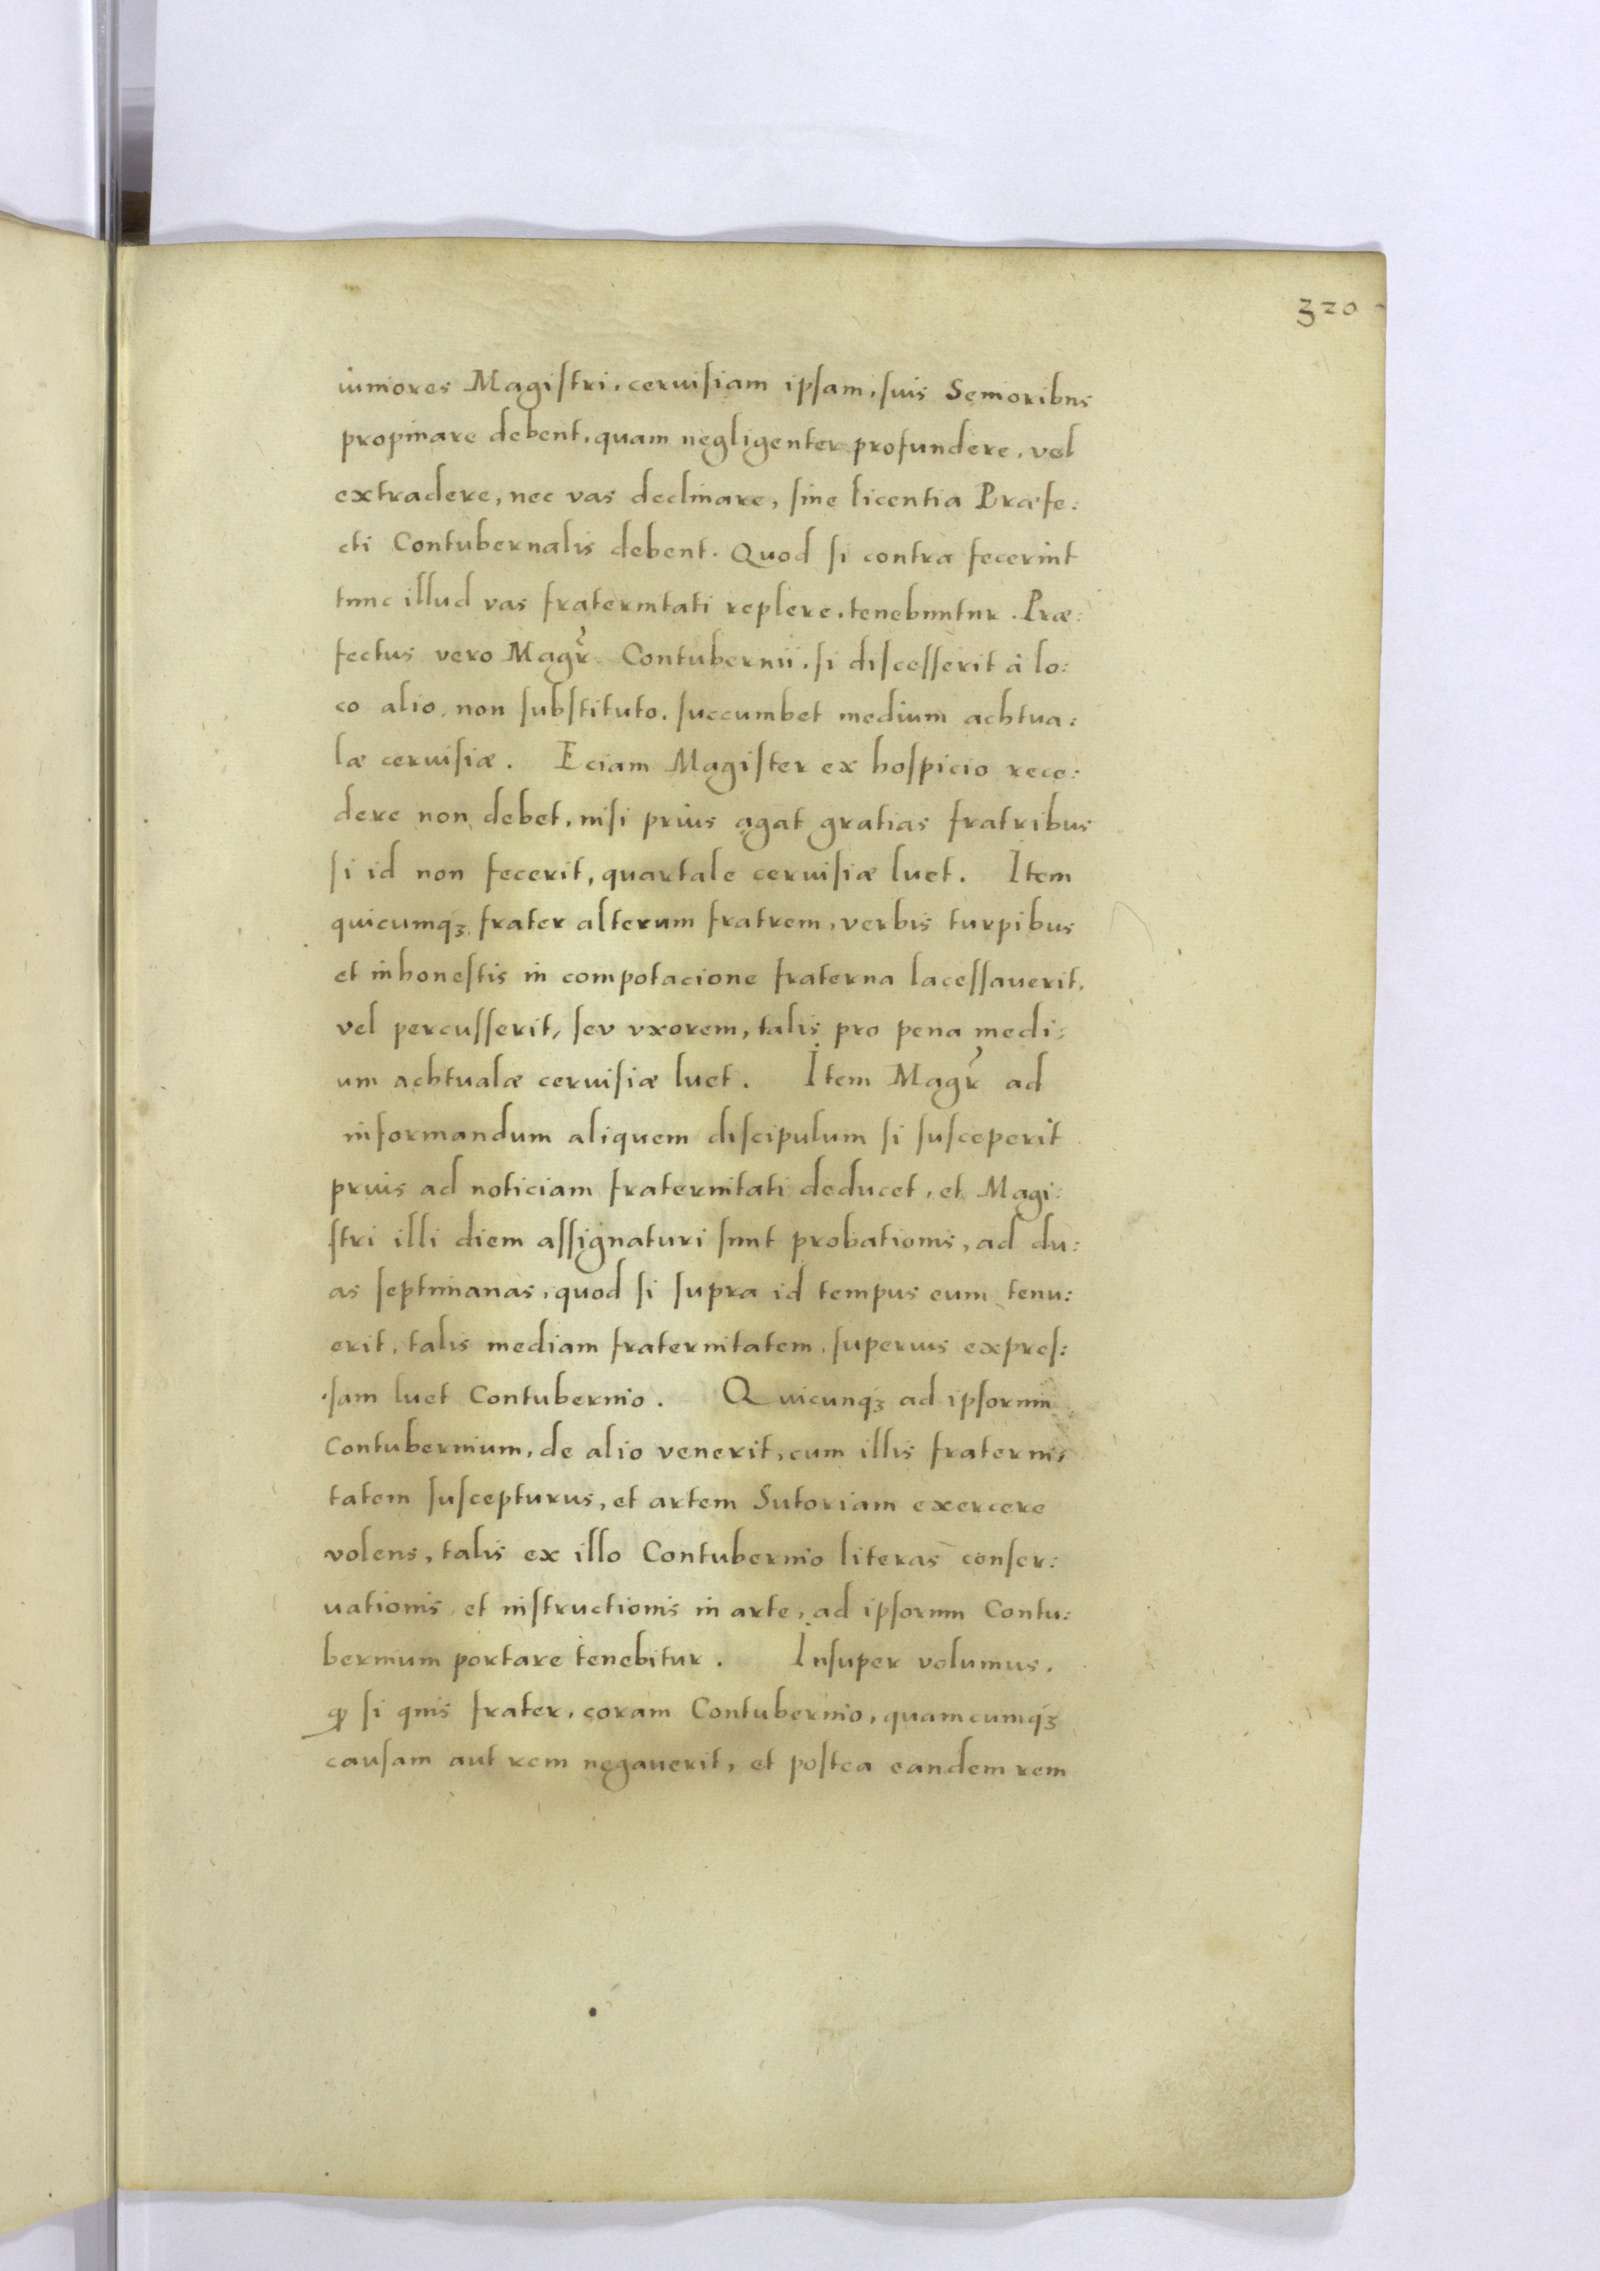 320
iuniores Magistri, ceruisiam ipsam, suis Senioribus
propinare debent, quam negligenter profundere, vel
extradere, nec vas declinare, sine licentia Præfe:
cti Contubernalis debent. Quod si contra fecerint
tunc illud vas fraternitati replere, tenebuntur. Præ:
fectus vero Magr̃ Contubernii, si discesserit à lo:
co alio, non substituto, succumbet medium achtua:
læ ceruisiæ. Eciam Magister ex hospicio rece:
dere non debet, nisi prius agat gratias fratribus
si id non fecerit, quartale ceruisiæ luet. Item
quicumqꝫ frater alterum fratrem, verbis turpibus
et inhonestis in compotacione fraterna lacessauerit,
vel percusserit, sev vxorem, talis pro pena medi:
um achtualæ ceruisiæ luet. Item Magr̃ ad
informandum aliquem discipulum si susceperit
prius ad noticiam fraternitati deducet, et Magi:
stri illi diem assignaturi sunt probationis, ad du:
as septimanas, quod si supra id tempus eum tenu:
erit, talis mediam fraternitatem, superius expres:
sam luet Contubernio. Quicunqꝫ ad ipsorum
Contubernium, de alio venerit, cum illis fraterni:
tatem suscepturus, et artem Sutoriam exercere
volens, talis ex illo Contubernio literas conser:
uationis et instructionis in arte, ad ipsorum Contu:
bernium portare tenebitur. Insuper volumus,
ꝙ si quis frater, coram Contubernio, quamcumqꝫ
causam aut rem negauerit, et postea eandem rem